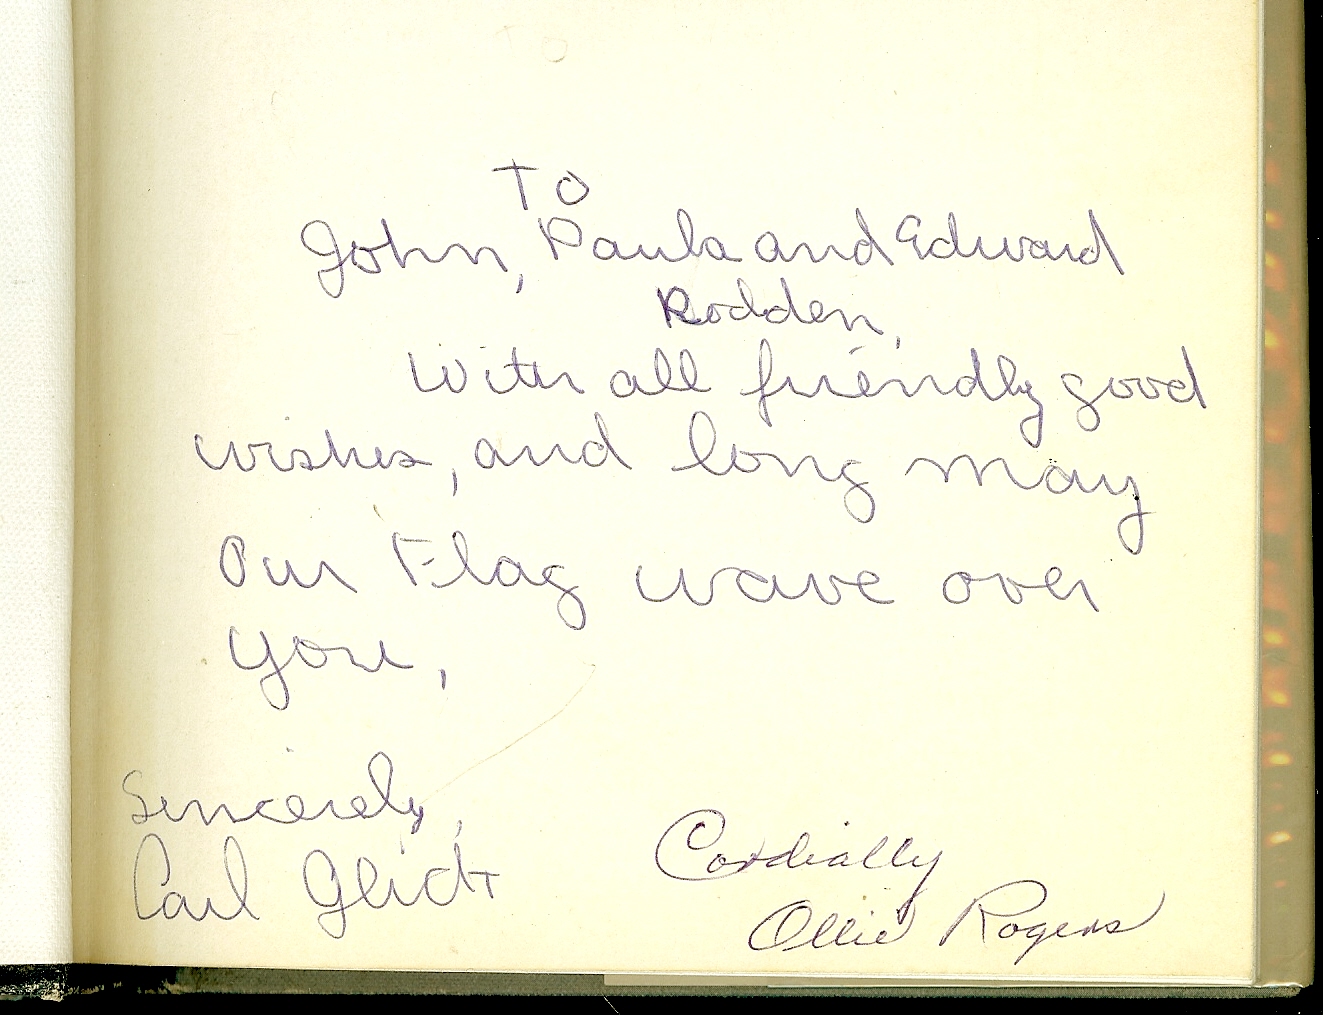 To
John, Paula and Edward
Rodden,
With all friendly good
wishes, and long may
Our Flag wave over
you,
Sincerely,
Carl Glick
Cordially
Ollie Rogers